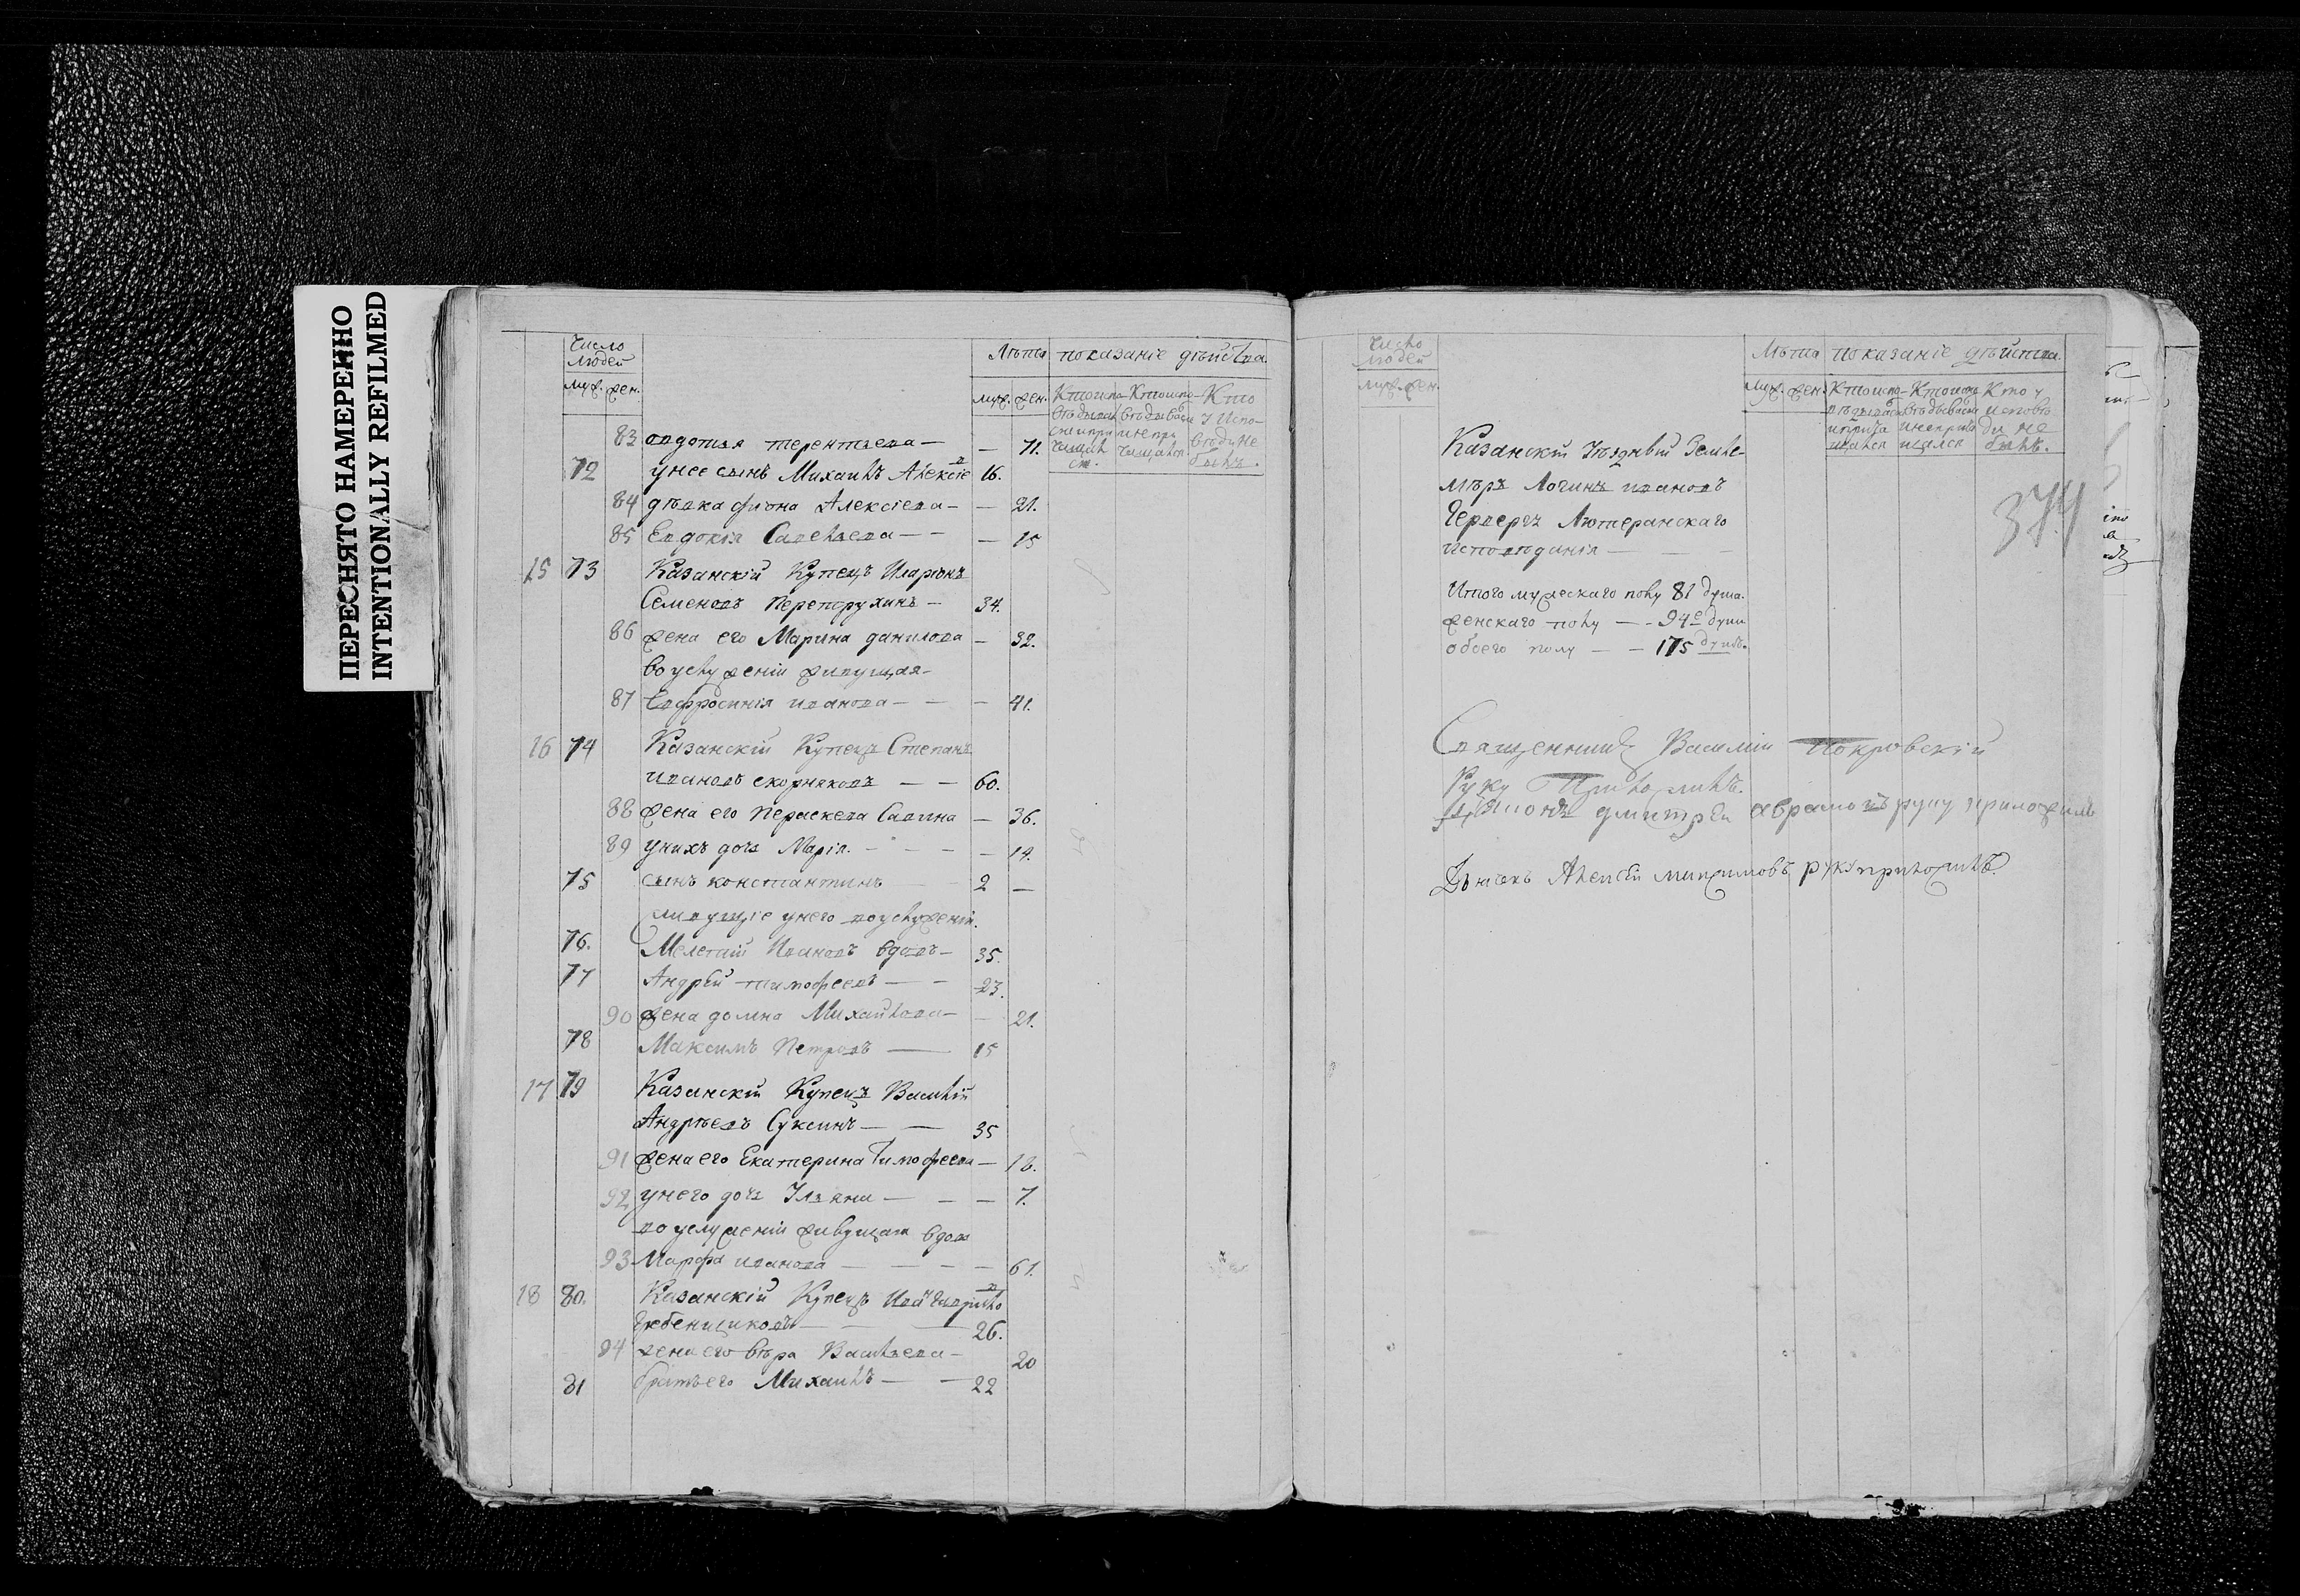 ПЕРЕСНЯТО НАМЕРЕННО
INTENTIONALLY REFILMED
Число людей
муж. жен.
Лѣта показаніе дѣйства
муж. жен.
Кто испо- Кто испо- Кто
вѣдывал вѣдывался у Испо-
83 овдотья терентьева — — 71.
72 унее сынъ Михаилъ Алексіев 16.
84 дѣвка фіона Алексіева — — 21.
85 Евдокія Савельева — — — 15
15 73 Казанскій Купецъ Иларіонъ
Семеновъ Перепорухинъ — 34.
86 жена его Марина данилова — 32.
во услуженіи живущая
87 Евфросинія иванова — — — 41.
16 74 Казанскій Купецъ Степанъ
ивановъ скорняковъ — — 60.
88 жена его Параскева Савина — 36.
89 унихъ дочь Марія. — — — 14.
75 сынъ константинъ 2 —
живущіе унего воуслуженіи.
76. Мелетій Ивановъ вдовъ — 35.
77 Андрей тимофеевъ — — 23.
90 жена домна Михайлова — — 21.
78 Максимъ Петровъ — 15
17 79 Казанскій Купецъ Василій
Андреевъ Суксинъ — — 35
91 жена его Екатерина Тимофеева — 18.
92 унего дочь Ульяни — — — 7.
во услуженіи живущая вдова
93 Марфа иванова — — — — 61.
18 80. Казанскій Купецъ Ива Гаврило
Гребенщиковъ — — 26.
94 жена его вѣра Васильева — 20
81 братъ его Михаилъ — — 22
Число людей
муж. жен.
Лѣта показаніе дѣйства
муж. жен. Кто испо- Кто испо Кто у
исповѣ
ди не
былъ.
374
Казанскій Уѣздный Земле-
мѣръ Логинъ ивановъ
Герберъ Лютеранскаго
исповѣданія — — —
Итого мужескаго полу 81 душа.
женскаго полу — — 94е души
обоего полу — — 175 душъ.
Священникъ Василій Покровскій
Руку Приложилъ.
Діаконъ дмитрей аврамовъ руку приложилъ
Дьячекъ Алексѣй руку приложилъ